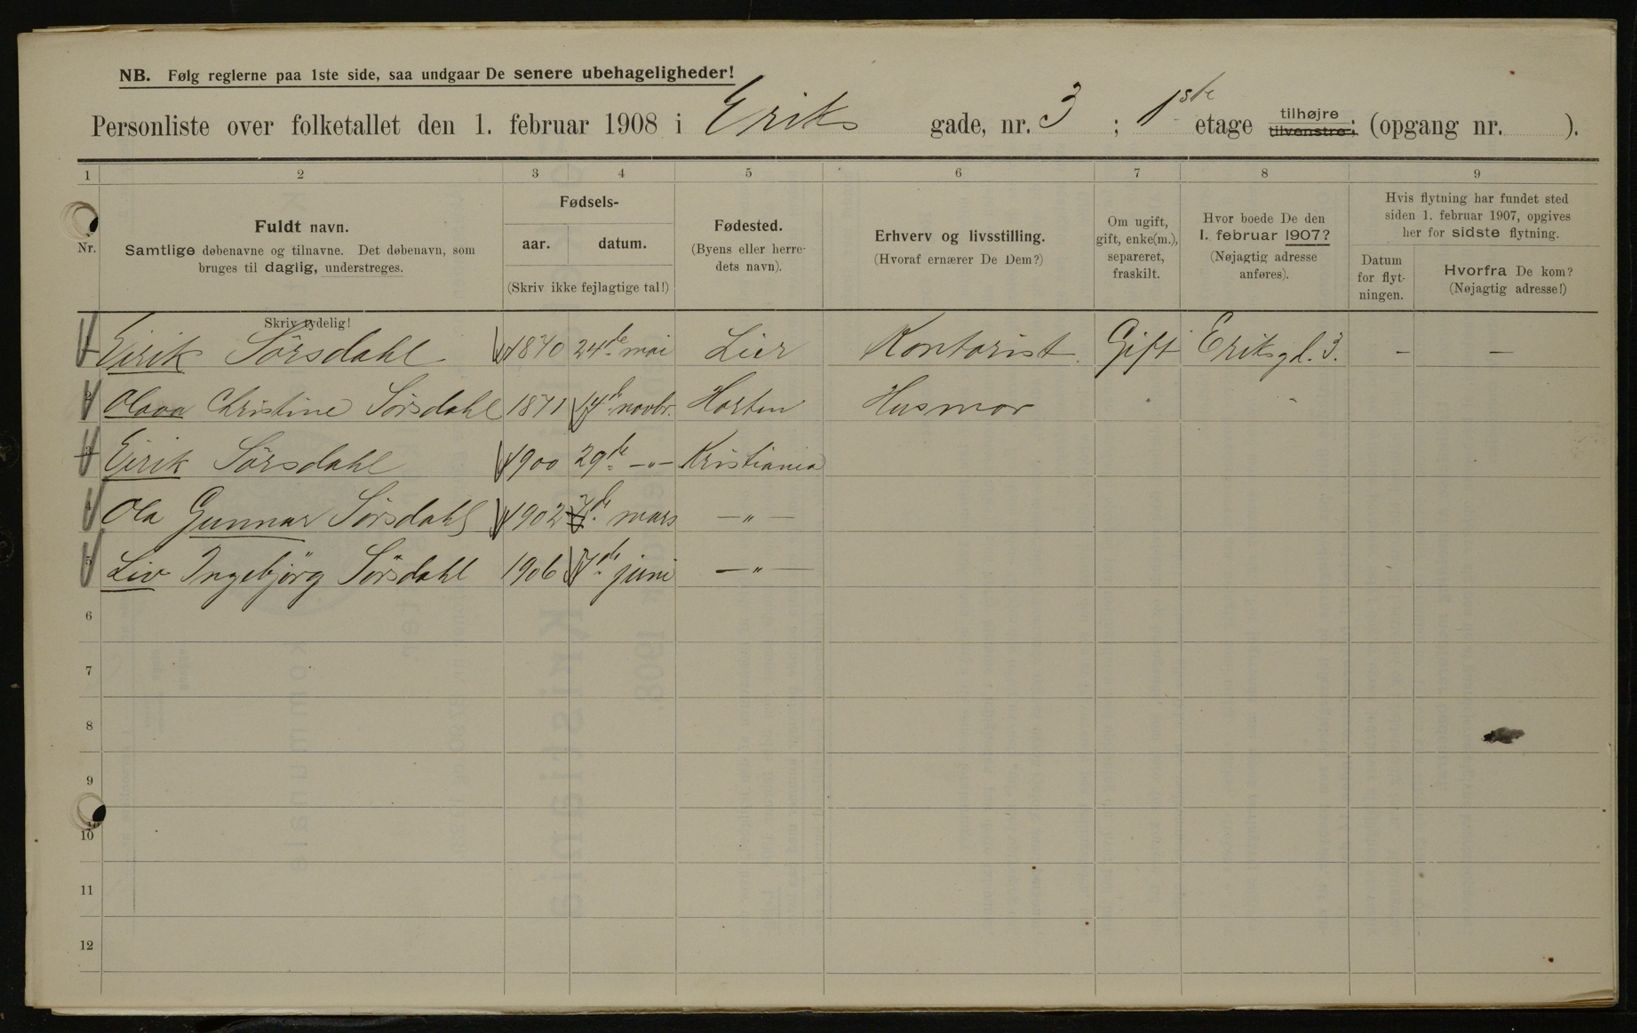 NB. Følg reglerne paa 1ste side, saa undgaar De senere ubehageligheder!
Personliste over folketallet den 1. februar 1908 i Eriks gade, nr. 3 ; 1ste etage tilhøjre tilvenstre; (opgang nr. ).
1 2 3 4 5 6 7 8 9
Nr.
Fuldt navn.
Samtlige døbenavne og tilnavne. Det døbenavn, som
bruges til daglig, understreges.
Skriv tydelig!
Fødsels-
aar. datum.
(Skriv ikke fejlagtige tal!)
Fødested.
(Byens eller herre-
dets navn).
Erhverv og livsstilling.
(Hvoraf ernærer De Dem?)
Om ugift,
gift, enke(m.),
separeret,
fraskilt.
Hvor boede De den
1. februar 1907?
(Nøjagtig adresse
anføres).
Hvis flytning har fundet sted
siden 1. februar 1907, opgives
her for sidste flytning.
Datum
for flyt-
ningen.
Hvorfra De kom?
(Nøjagtig adresse!)
Eirik Sørsdahl 1870 24de mai Lier Kontorist Gift Eriksgd. 3. - -
2 Olava Christine Sørsdahl 1871 14d. novbr. Horten Husmor
3 Eirik Sørsdahl 1900 29de -„- Kristiania
Ola Gunnar Sørsdahl 1902 mars -„-
5 Liv Ingebjörg Sørsdahl 1906 7de juni -„-
6
7
8
9
10
11
12